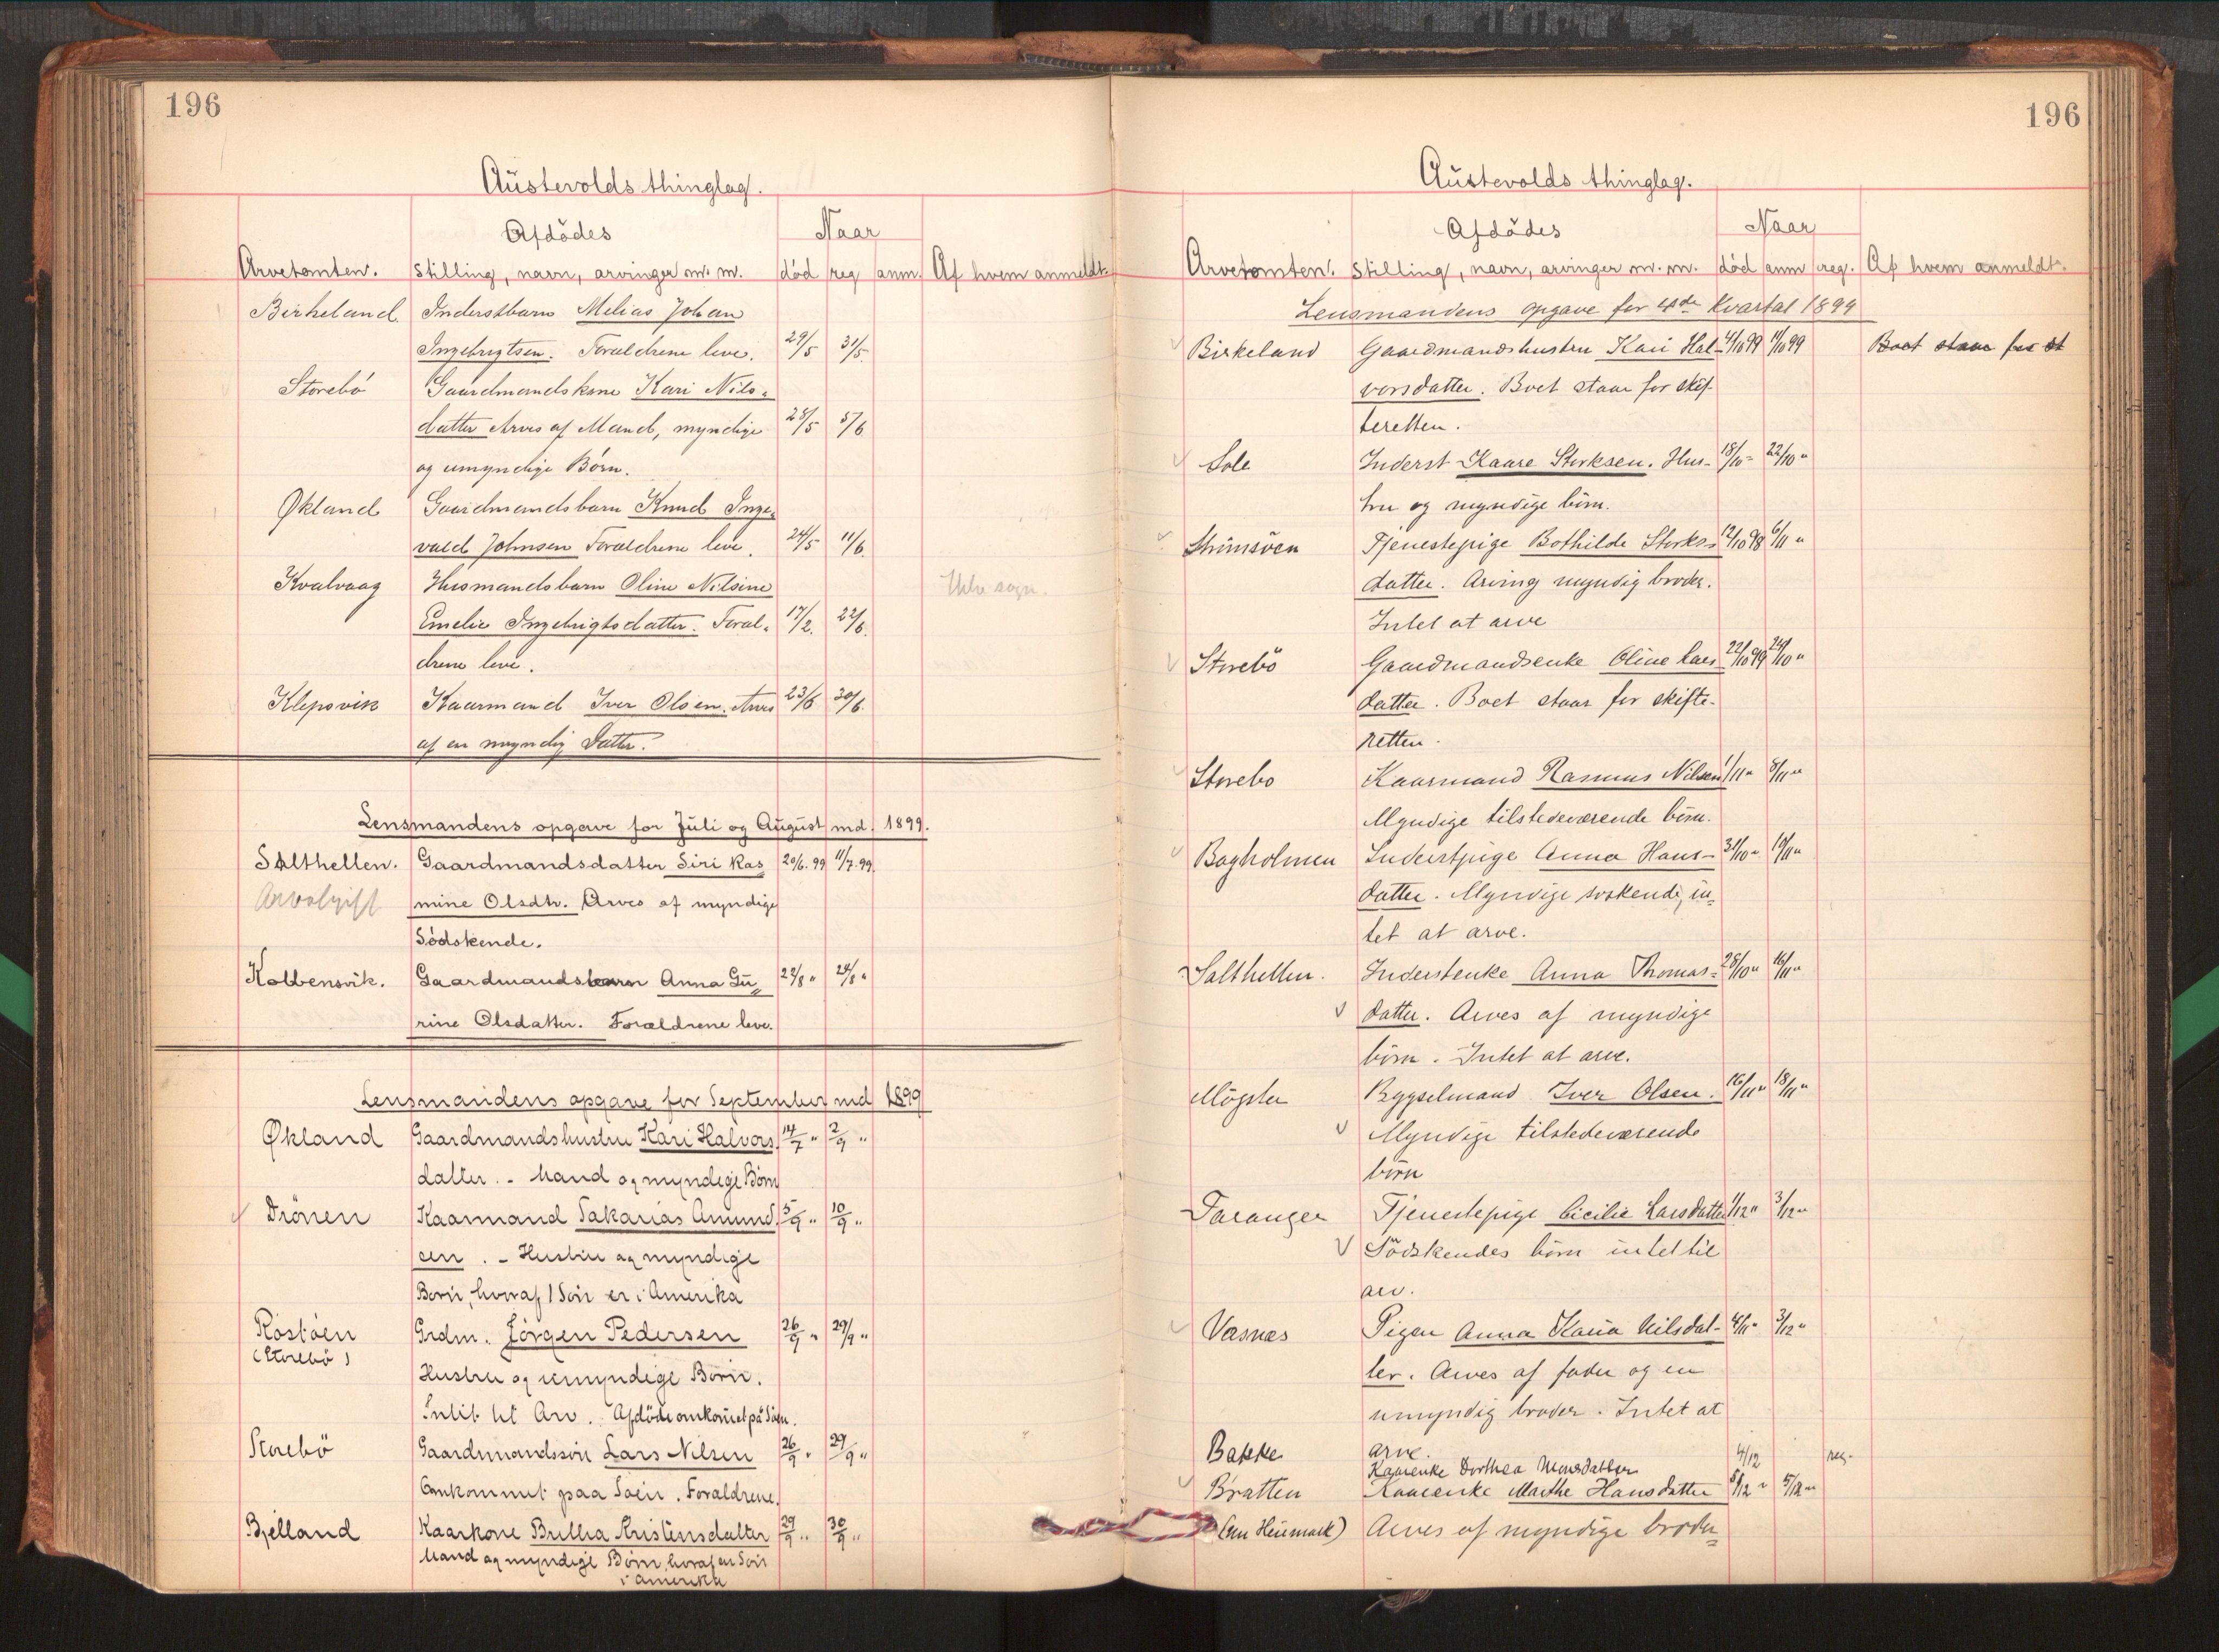 196
Austevolds thinglag.
Afdödes
Naar
Arvetomten. Stilling, navn, arvinger m. m. död reg anm. Af hvem anmeldt.
Birkeland. Inderstbarn Melias Johan
Ingebrigtsen. Forældrene leve. 29/5 31/5
Storebö Gaardmandskone Kari Nils-
datter Arves af Mand, myndige 28/5 5/6
og umyndige Börn.
Økland Gaardmandsbarn Knud Inge-
vald Johnsen Forældrene leve. 24/5 11/6
Kvalvaag Husmandsbarn Oline Nilsine Ikke sogn.
Emelie Ingebrigtsdatter. Foræl- 17/2. 22/6.
drene leve.
Klepsvik Kaarmand Iver Olsen. Arves 23/6 30/6.
af en myndig Datter.
Lensmandens opgave for Juli og August md. 1899.
Salthellen. Gaardmandsdatter Siri Ras 20/6.99 11/7.99.
Arveafgift mine Olsdtr. Arves af myndige
Södskende.
Kolbensvik. Gaardmandsbarn Anna Gu„ 22/8 " 24/8 "
rine Olsdatter. Forældrene leve.
Lensmandens opgave for September md 1899
Økland Gaardmandshustru Kari Halvors 14/7 " 2/9 "
datter. - Mand og myndige Börn
Drönen Kaarmand Sakarias Amund 5/9 " 10/9 "
sen. - Hustru og myndige
Börn, hvoraf 1 Sön er i Amerika
Rostöen Grdm. Jörgen Pedersen 26/9 " 29/9 "
(Storebö)
Hustru og umyndige Börn.
Intet til Arv. Afdöde omkomet på Söen.
Storebö Gaardmandssön Lars Nilsen 26/9 " 29/9 "
Omkommet paa Söen. Forældrene.
Bjelland Kaarkone Brithe Kristensdatter 29/9 " 30/9 "
Mand og myndige Börn, hvoraf en Sön
i Amerika
196
Austevolds thinglag.
Afdödes
Naar
Arvetomten. Stilling, navn, arvinger m. m. död anm reg. Af hvem anmeldt.
Lensmandens opgave for 4de Kvartal 1899
Birkeland Gaardmandshustru Kari Hal- 4/10 99 11/10 99 Boet staar for sk
vorsdatter. Boet staar for skif-
teretten.
Sole Inderst Kaare Sterksen. Hus- 18/10 " 22/10 "
tru og myndige börn.
Strömsöen Tjenestepige Bothilde Sterks- 12/10 98 6/11 "
datter. Arving myndig broder.
Intet at arve
Storebö Gaardmandsenke Oline Lars 22/10 99 24/10 "
datter. Boet staar for skifte-
retten.
Storebo Kaarmand Rasmus Nilsen 1/11 " 8/11 "
Myndige tilstedeværende börn.
Bagholmen Inderstpige Anna Hans- 31/10 " 10/11 "
datter. Myndige söskende, in-
tet at arve.
Salthellen. Inderstenke Anna Thomas- 28/10 " 16/11 "
datter. Arves af myndige
börn. Intet at arve.
Mögster Bygselmand Iver Olsen. 16/11 " 18/11 "
Myndige tilstedeværende
börn
Taranger Tjenestepige Cicilie Larsdatter 1/12 " 3/12 "
Södskendes börn intet til
arv.
Vasnæs Pigen Anna Karia Nilsdat- 4/11 " 3/12 "
ter. Arves af fader og en
umyndig broder. Intet at
arve.
Bakke Kaarenke Dorthea Monsdatter 4/12 reg.
Bratten Kaarenke Marthe Hansdatter 5/12 " 5/12 "
(m Heimark) Arves af myndige broder